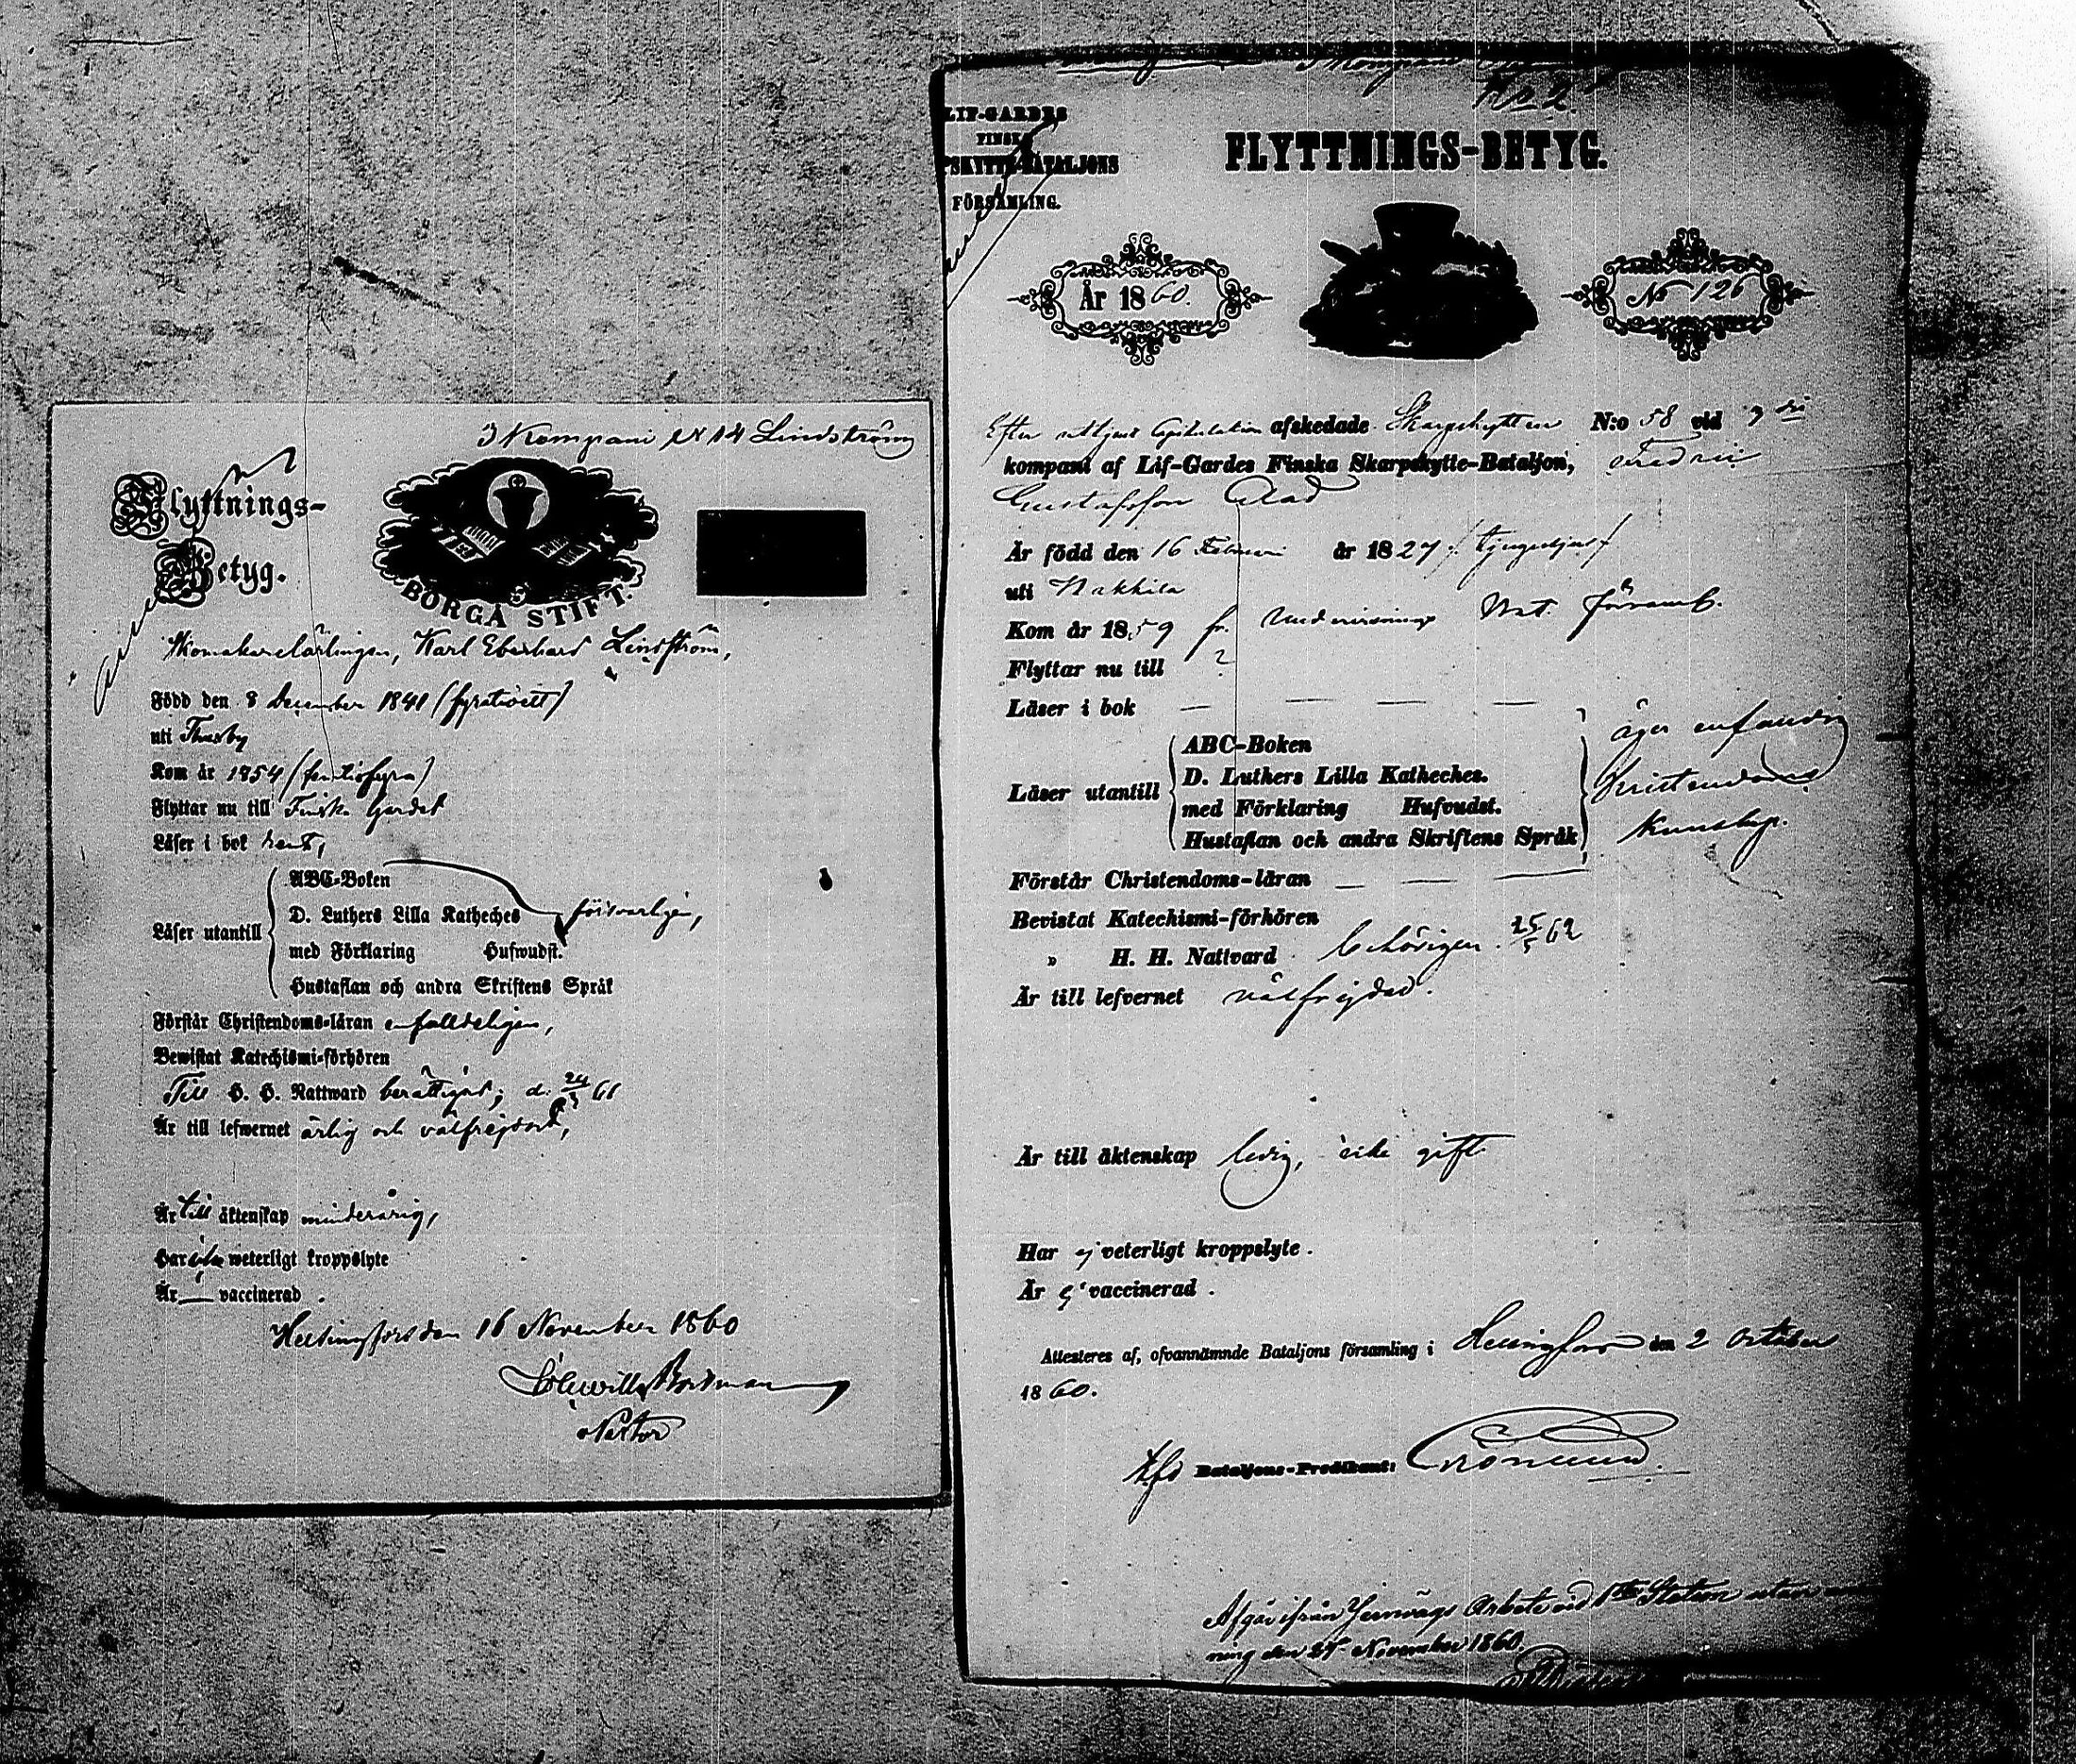 3 Kompani N 14 Lindström
Flyttnings-
Betyg.
BORGÅ STIFT.
Skomakarelärlingen, Karl Eberhard Lindström,
Född den 8 December 1841 (fyratioett)
uti Thusby
Kom år 1854 (femtiofyra)
Flyttar nu till Finska Gardet
Läser i bok rent,
ABC-Boken
D. Luthers Lilla Katheches
Läser utantill
med Förklaring Hufwudst.
försvarligen,
Hustaflan och andra Skriftens Språk
Förstår Christendoms-läran enfaldeligen,
Bewistat Katechismi-förhören
Till H. H. Nattward berättigad; d. 24/3 61
Är till lefwernet ärlig och välfrejdad,
Är till äktenskap minderårig,
Har icke weterligt kroppslyte
Är — vaccinerad .
Helsingfors den 16 November 1860
Pastor
N:o 2
LIF-GARDES
FINSKA
PSKYTTE-BATALJONS
FÖRSAMLING.
FLYTTNINGS-BETYG.
År 1860.
No 126
Efter uttjent Capitulation afskedade Skarpskytten N:o 58 vid
kompani af Lif-Gardes Finska Skarpskytte-Bataljon, Fredric
Gustafsson Glad
Är född den 16 Februari år 1827 /: tjugusju :/
uti Nakkila
Kom år 1859 fr. Undervisnings Bat. församl.
Flyttar nu till ?
Läser i bok — — — —
ABC-Boken
D. Luthers Lilla Katheches.
Läser utantill
med Förklaring Hufvudst.
Hustaflan och andra Skriftens Språk
äger enfaldig
Kristendoms
kunskap.
Förstår Christendoms-läran — — —
Bevistat Katechismi-förhören
» H. H. Nattvard behörigen. 25/5 62
Är till lefvernet välfrejdad.
Är till äktenskap ledig, icke gift
Har ej veterligt kroppslyte .
Är vaccinerad .
Attesteras af, ofvannämnde Bataljons församling i Helsingfors den 2 October
1860.
Bataljons-Predikant:
Afgår ifrån Jernvägs Arbete vid 1sta Station utan
ning den 27 November 1860.